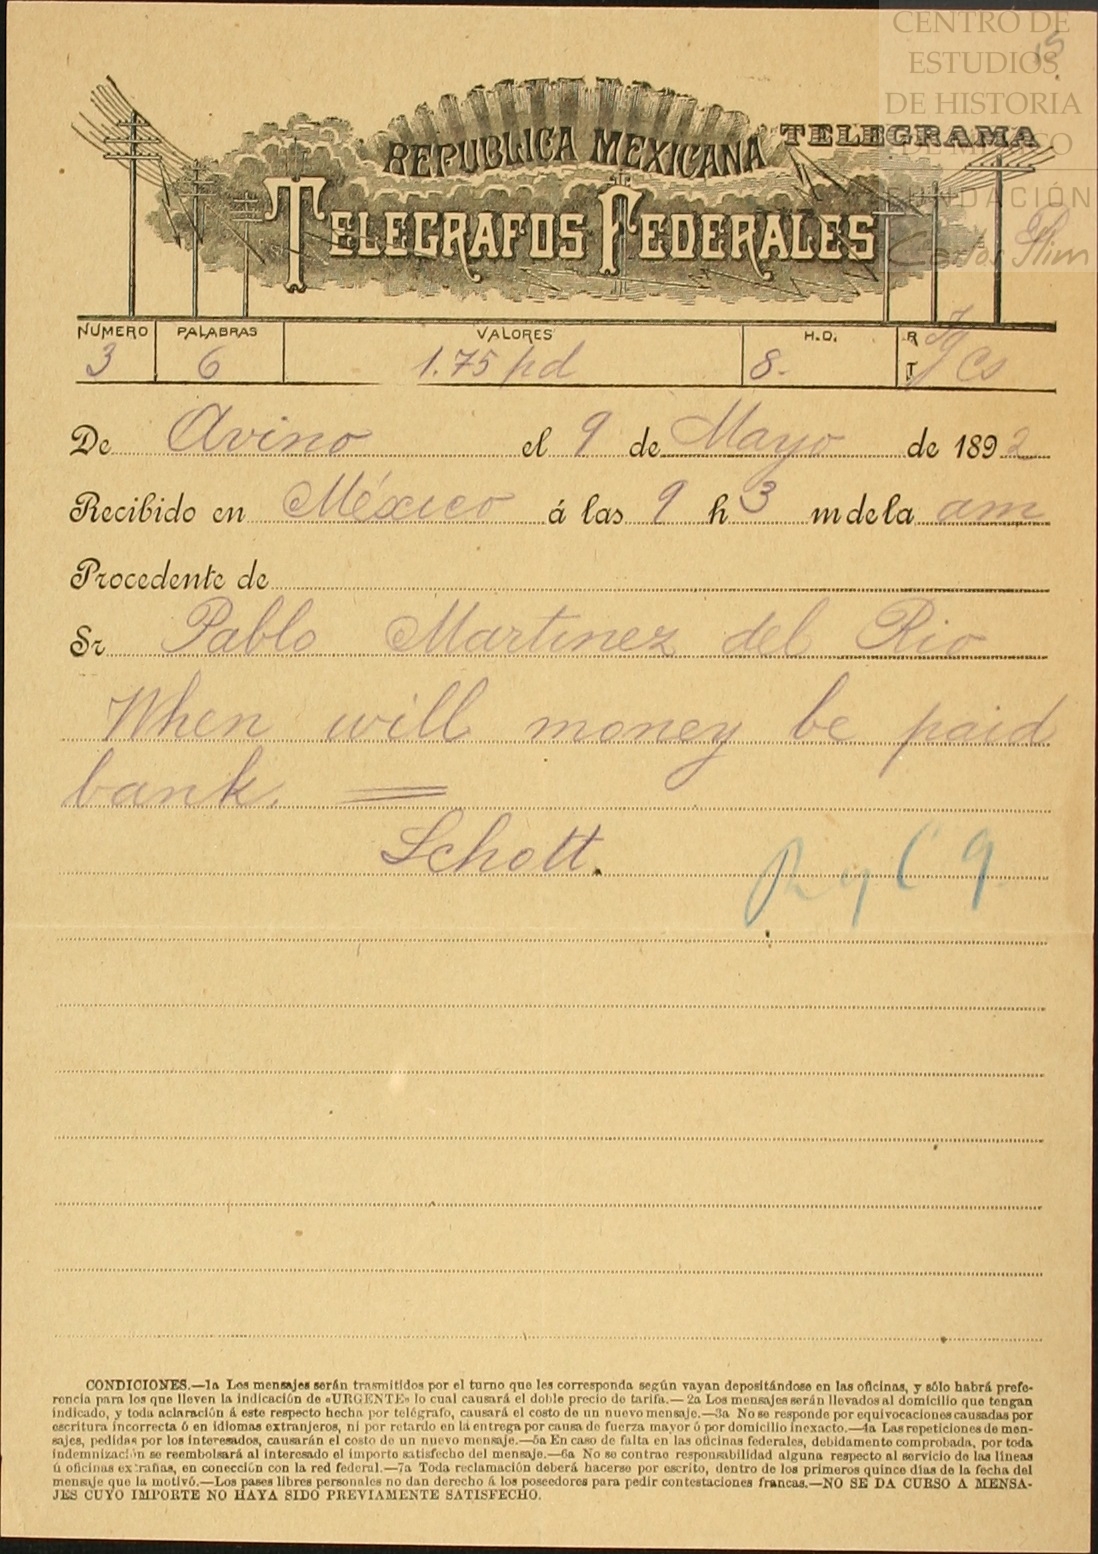 CENTRO DE
ESTUDIOS
DE HISTORIA
DE MÉXICO
FUNDACIÓN
Carlos Slim
15
REPUBLICA MEXICANA
TELEGRAMA
TELEGRAFOS FEDERALES
NUMERO PALABRAS VALORES H.D. R
3 6 1.75 pd 8. T Cs
De Avino el 9 de Mayo de 1892
Recibido en México á las 9 h 3 m de la am
Procedente de
Sr Pablo Martinez del Rio
When will money be paid
bank. =
Schott.
C 9.
CONDICIONES.—1a Los mensajes serán trasmitidos por el turno que les corresponda según vayan depositándose en las oficinas, y sólo habrá prefe-
rencia para los que lleven la indicación de «URGENTE» lo cual causará el doble precio de tarifa.—2a Los mensajes serán llevados al domicilio que tengan
indicado, y toda aclaración á este respecto hecha por telégrafo, causará el costo de un nuevo mensaje.—3a No se responde por equivocaciones causadas por
escritura incorrecta ó en idiomas extranjeros, ni por retardo en la entrega por causa de fuerza mayor ó por domicilio inexacto.—4a Las repeticiones de men-
sajes, pedidas por los interesados, causarán el costo de un nuevo mensaje.—5a En caso de falta en las oficinas federales, debidamente comprobada, por toda
indemnización se reembolsará al interesado el importe satisfecho del mensaje.—6a No se contrae responsabilidad alguna respecto al servicio de las líneas
ú oficinas extrañas, en conección con la red federal.—7a Toda reclamación deberá hacerse por escrito, dentro de los primeros quince días de la fecha del
mensaje que la motivó.—Los pases libres personales no dan derecho á los poseedores para pedir contestaciones francas.—NO SE DA CURSO A MENSA-
JES CUYO IMPORTE NO HAYA SIDO PREVIAMENTE SATISFECHO.